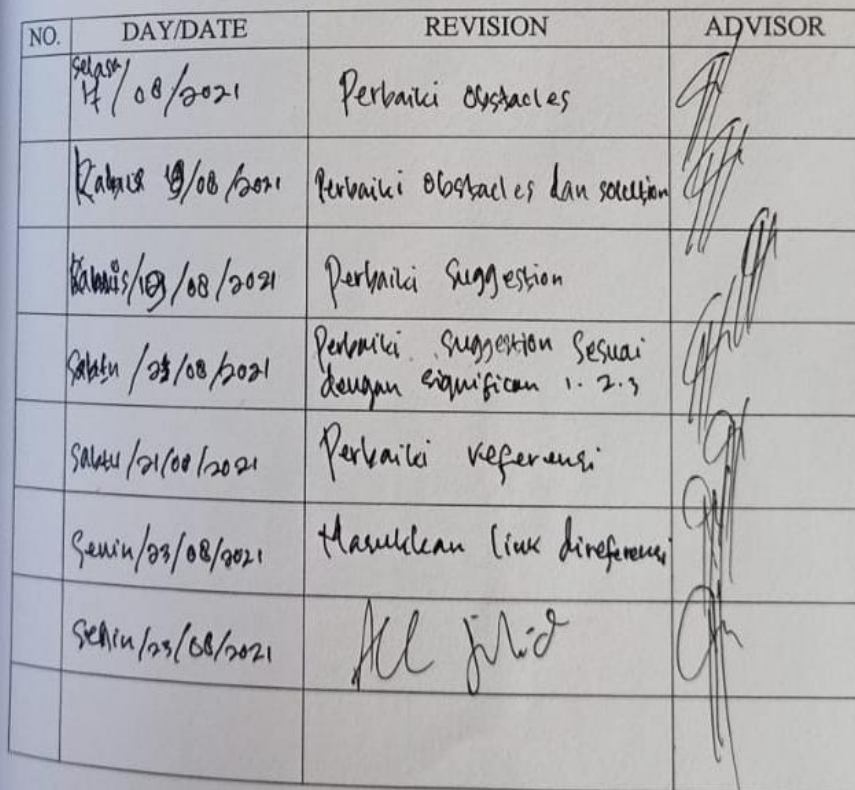 NO. DAY/DATE REVISION ADVISOR
Selasa/
17/08/2021 Perbaiki Obstacles
Kamis 19/08/2021 Perbaiki Obstacles dan solution
Kamis/19/08/2021 Perbaiki Suggestion
Sabtu/21/08/2021 Perbaiki suggestion Sesuai
dengan significan 1. 2. 3
Sabtu/21/08/2021 Perbaiki referensi
Senin/23/08/2021 Masukkan link direferensi
Senin/23/08/2021 Acc jilid